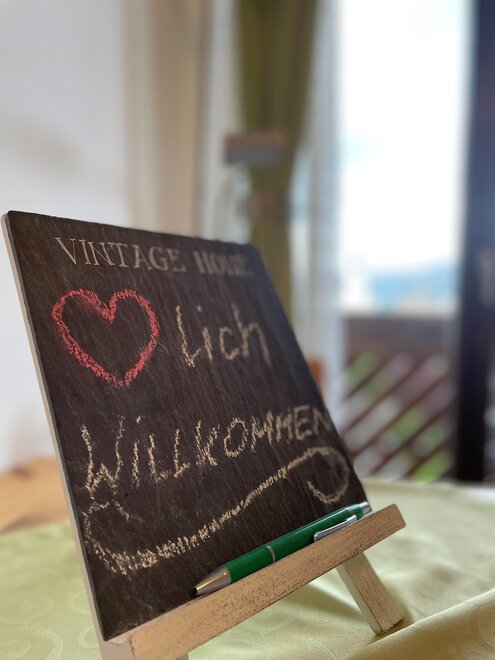 VINTAGE HOME
lich
WILLKOMMEN